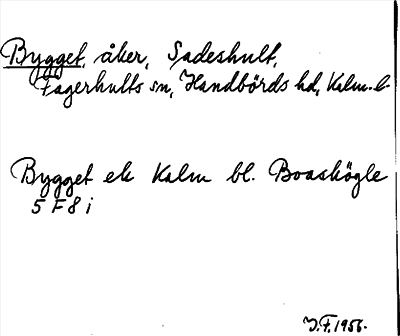 Bygget, åker, Sadeshult,
Fagerhults sn, Handbörds hd, Kalm. l.
Bygget ek Kalm bl. Boaskögle
5 F 8 i
J.F. 1956.